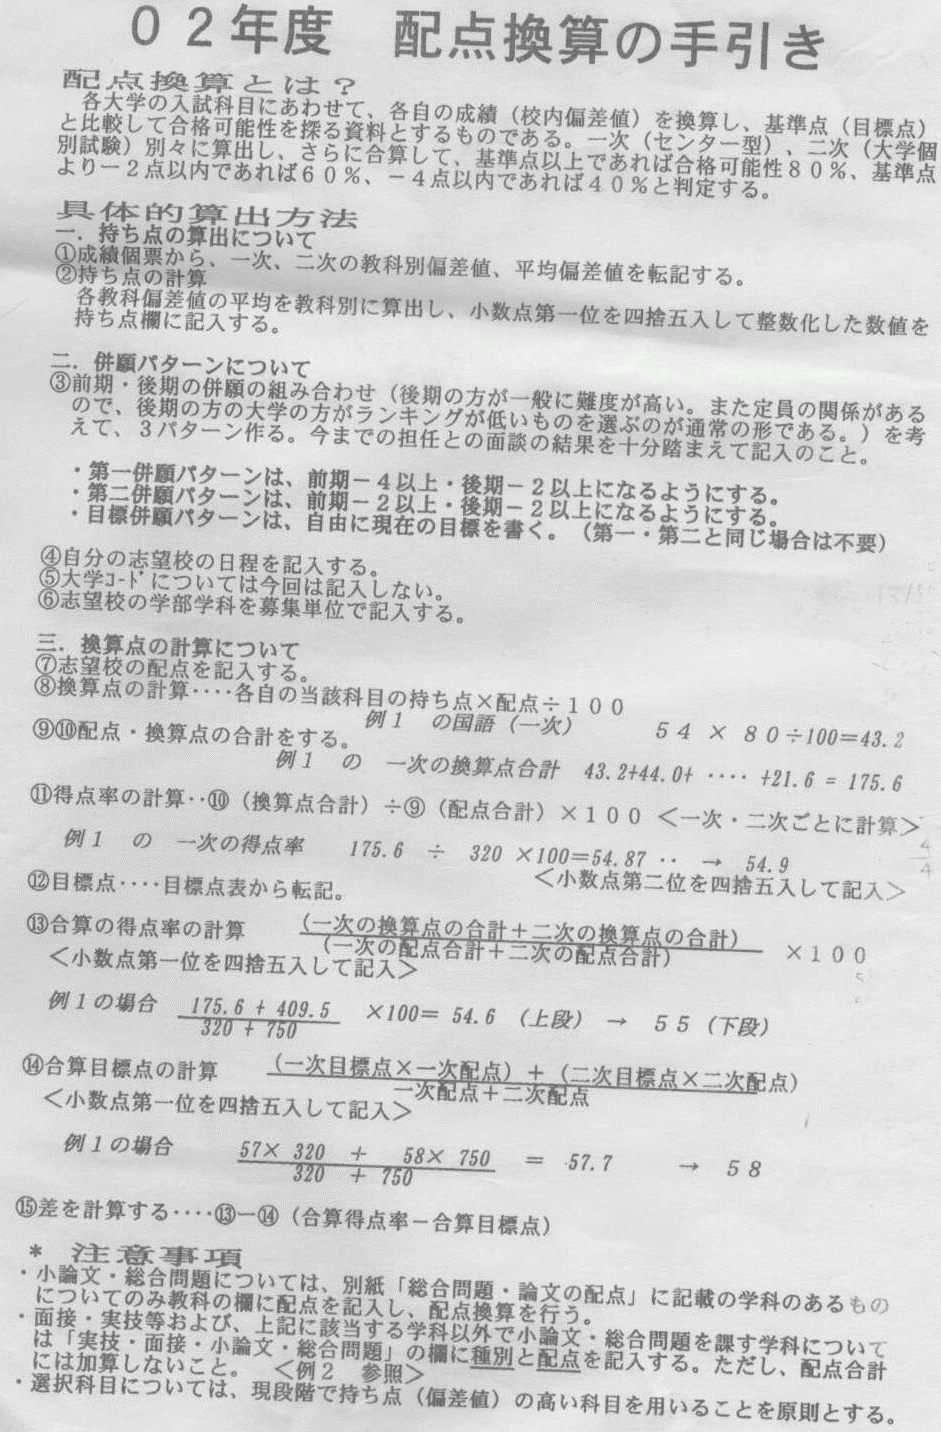 ０２年度　配点換算の手引き
配点換算とは？
各大学の入試科目にあわせて、各自の成績（校内偏差値）を換算し、基準点（目標点）
と比較して合格可能性を探る資料とするものである。一次（センター型）、二次（大学個
別試験）別々に算出し、さらに合算して、基準点以上であれば合格可能性８０％、基準点
より－２点以内であれば６０％、－４点以内であれば４０％と判定する。
具体的算出方法
一．持ち点の算出について
①成績個票から、一次、二次の教科別偏差値、平均偏差値を転記する。
②持ち点の計算
各教科偏差値の平均を教科別に算出し、小数点第一位を四捨五入して整数化した数値を
持ち点欄に記入する。
二．併願パターンについて
③前期・後期の併願の組み合わせ（後期の方が一般に難度が高い。また定員の関係がある
ので、後期の方の大学の方がランキングが低いものを選ぶのが通常の形である。）を考
えて、３パターン作る。今までの担任との面談の結果を十分踏まえて記入のこと。
・第一併願パターンは、前期－４以上・後期－２以上になるようにする。
・第二併願パターンは、前期－２以上・後期－２以上になるようにする。
・目標併願パターンは、自由に現在の目標を書く。（第一・第二と同じ場合は不要）
④自分の志望校の日程を記入する。
⑤大学ｺｰﾄﾞについては今回は記入しない。
⑥志望校の学部学科を募集単位で記入する。
三．換算点の計算について
⑦志望校の配点を記入する。
⑧換算点の計算‥‥各自の当該科目の持ち点×配点÷１００
例１　の国語（一次）　５４　×　８０÷100＝43.2
⑨⑩配点・換算点の合計をする。
例１　の　一次の換算点合計　43.2+44.0+ ‥‥ +21.6 = 175.6
⑪得点率の計算‥⑩（換算点合計）÷⑨（配点合計）×１００　＜一次・二次ごとに計算＞
例１　の　一次の得点率　175.6　÷　320 ×100＝54.87 ‥　→　54.9
⑫目標点‥‥目標点表から転記。　＜小数点第二位を四捨五入して記入＞
⑬合算の得点率の計算　（一次の換算点の合計＋二次の換算点の合計）
（一次の配点合計＋二次の配点合計）　×１００
＜小数点第一位を四捨五入して記入＞
例１の場合　175.6 + 409.5　×100＝ 54.6　（上段）　→　５５（下段）
320 + 750
⑭合算目標点の計算　（一次目標点×一次配点）＋（二次目標点×二次配点）
一次配点＋二次配点
＜小数点第一位を四捨五入して記入＞
例１の場合　57× 320　+　58× 750　=　57.7　→　５８
320　+ 750
⑮差を計算する‥‥⑬－⑭（合算得点率－合算目標点）
＊　注意事項
・小論文・総合問題については、別紙「総合問題・論文の配点」に記載の学科のあるもの
についてのみ教科の欄に配点を記入し、配点換算を行う。
・面接・実技等および、上記に該当する学科以外で小論文・総合問題を課す学科について
は「実技・面接・小論文・総合問題」の欄に種別と配点を記入する。ただし、配点合計
には加算しないこと。　＜例２　参照＞
・選択科目については、現段階で持ち点（偏差値）の高い科目を用いることを原則とする。